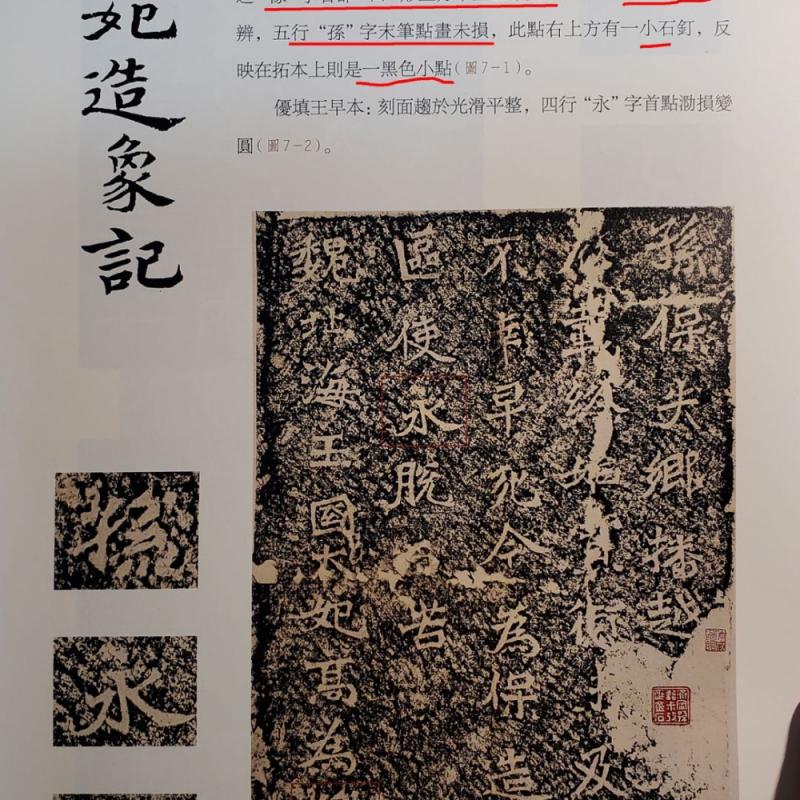 辨，五行“孫”字末筆點畫未損，此點右上方有一小石釘，反
映在拓本上則是一黑色小點（圖7-1）。
優填王早本：刻面趨於光滑平整，四行“永”字首點泐損變
圓（圖7-2）。
妃造象記
孫保失鄉播越
載 始 衛 又
不 早死今為保造
區使永脫百苦
魏北海王國太妃高為
孫
永